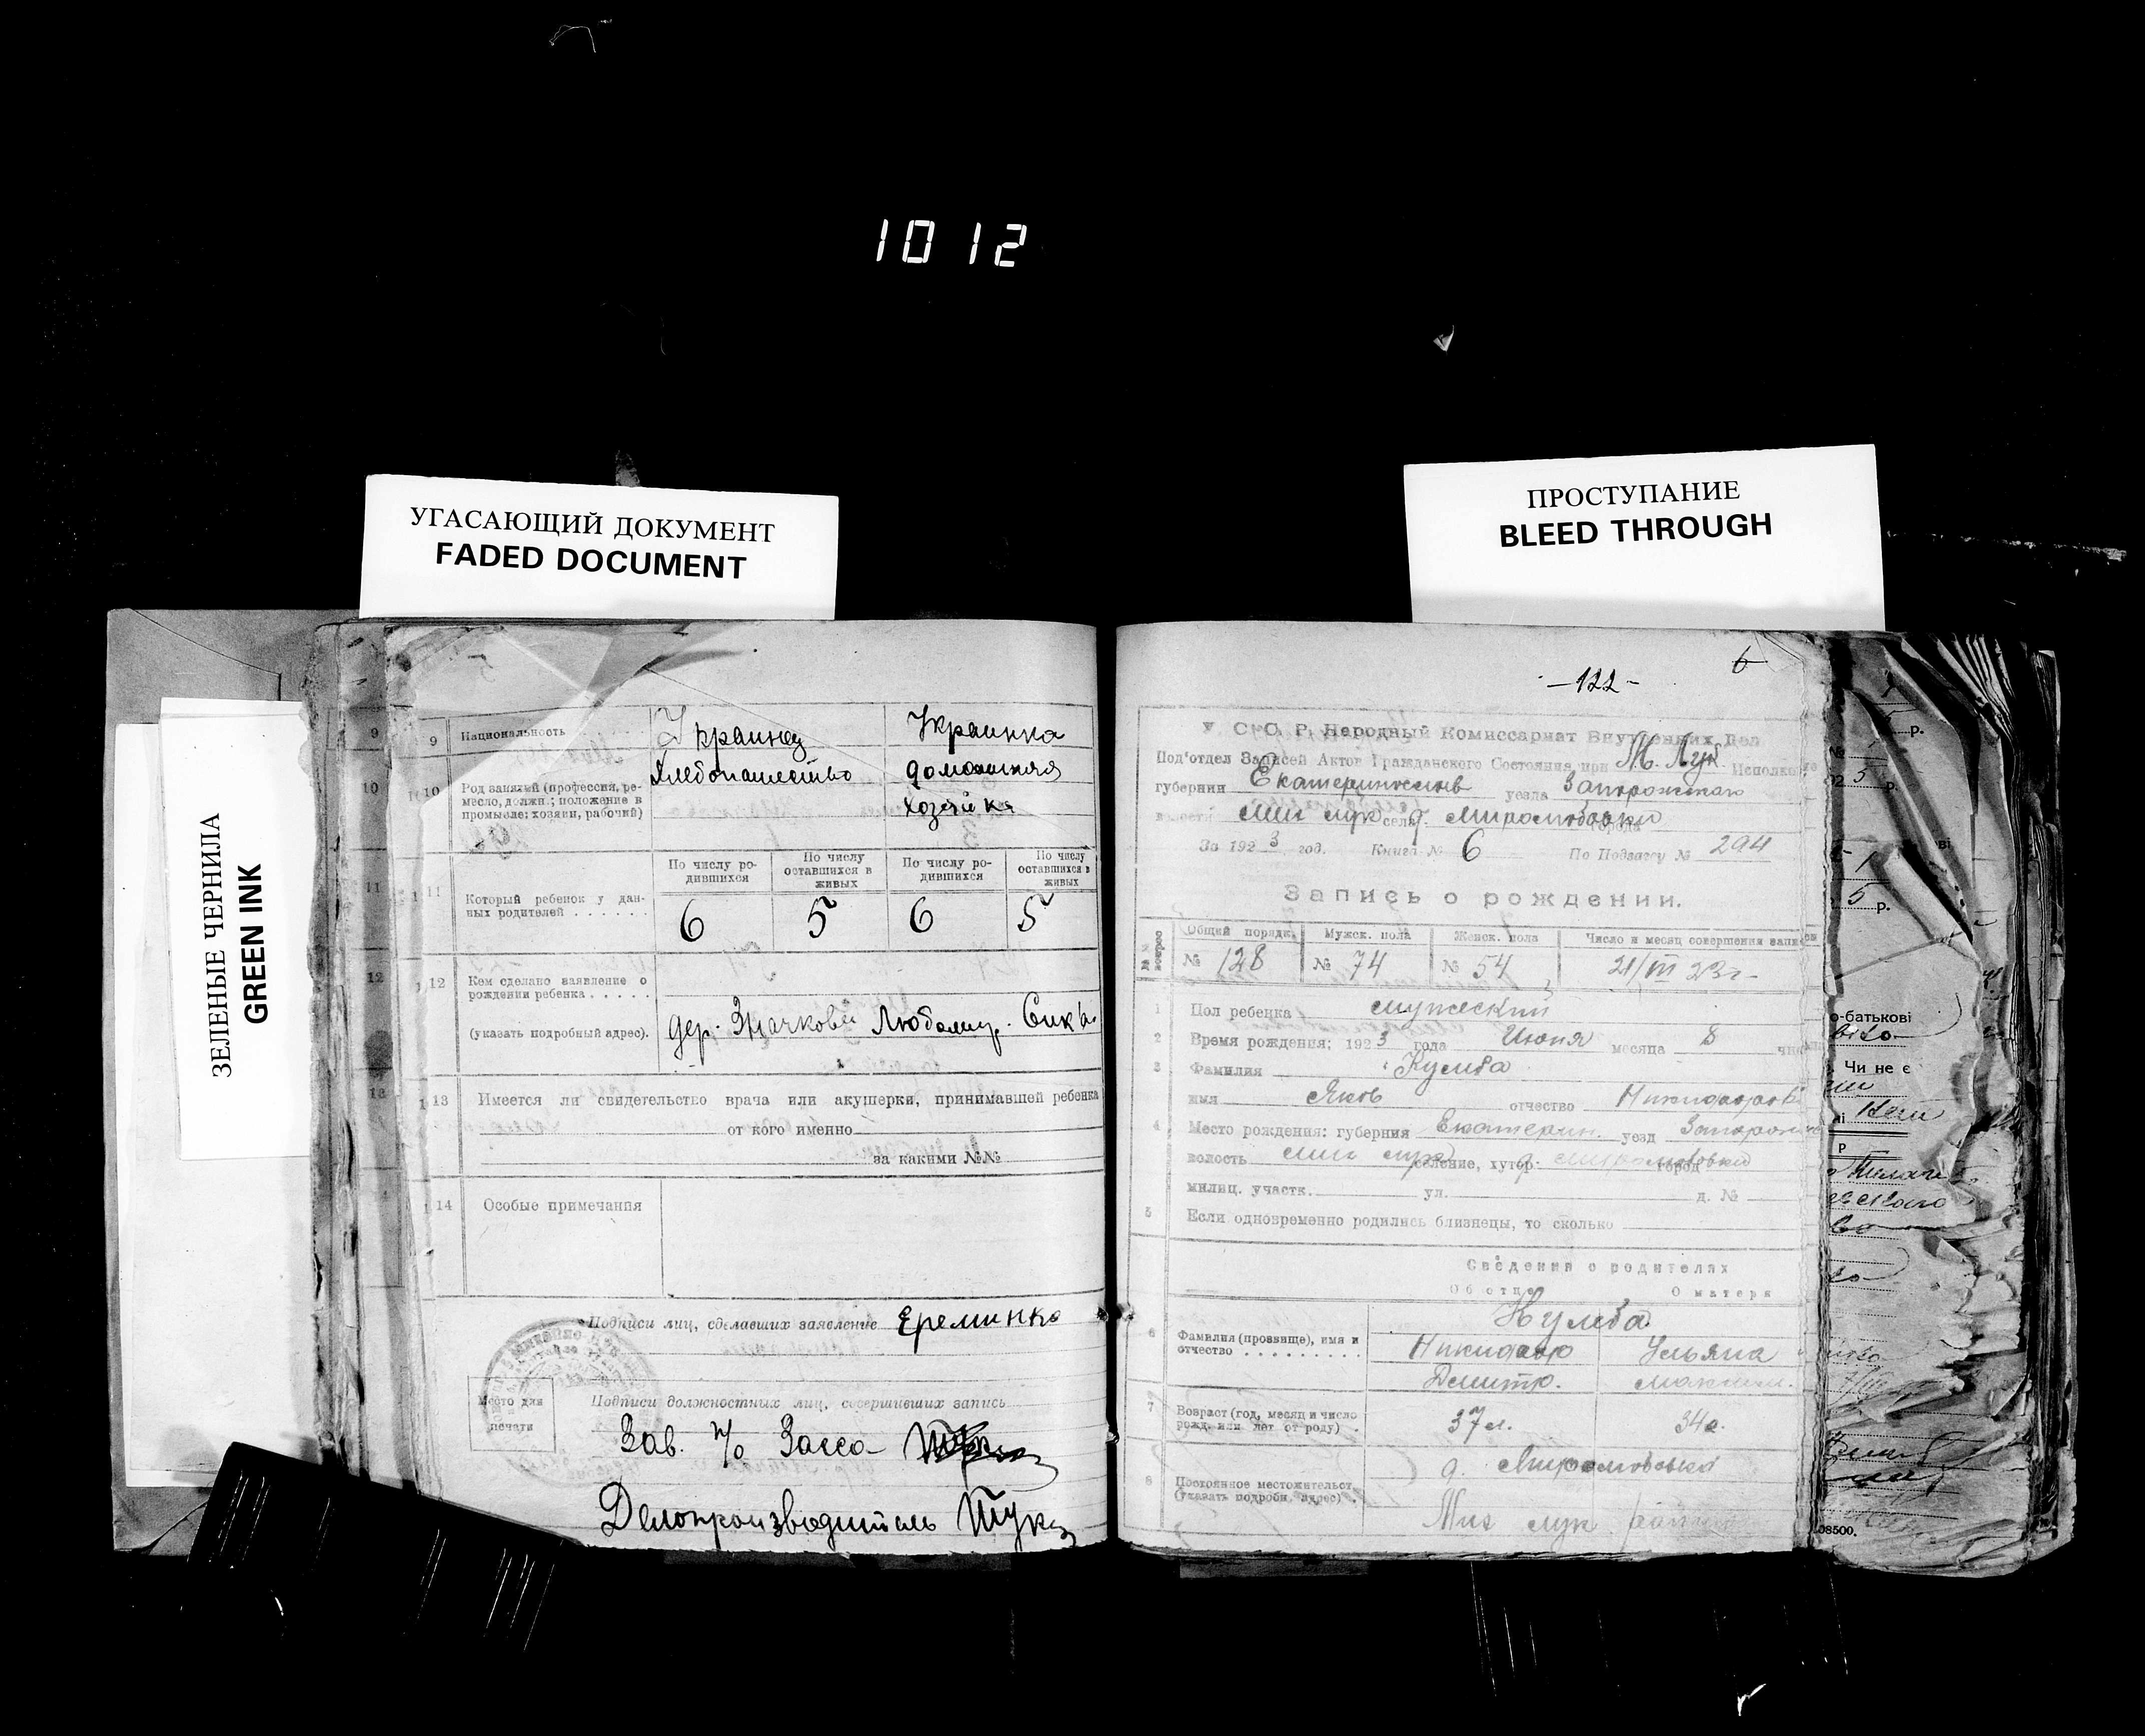 1012
УГАСАЮЩИЙ ДОКУМЕНТ
FADED DOCUMENT
ПРОСТУПАНИЕ
BLEED THROUGH
ЗЕЛЕНЫЕ ЧЕРНИЛА
GREEN INK
9
10
11
12
13
9 Национальность Украинец Украинка
10 Род занятий (профессия, ре-
месло, должн.; положение в
промысле: хозяин, рабочий)
Хлебопашество домашняя
хозяйка
11 Который ребенок у дан-
ных родителей
По числу ро-
дившихся
По числу
оставшихся в
живых
По числу ро-
дившихся
По числу
оставшихся в
живых
6 5 6 5
12 Кем сделано заявление о
рождении ребенка
(указать подробный адрес).
дер.
13 Имеется ли свидетельство врача или акушерки, принимавшей ребенка
от кого именно
за какими №№
14 Особые примечания
Подписи лиц, сделавших заявление Ереминко
Место для
печати
Подписи должностных лиц, совершивших запись
Зав. п/о
Делопроизводитель
—122— 6
У. С. С. Р. Народный Комиссариат Внутренних Дел
Под'отдел Записей Актов Гражданского Состояния при М. Лук. Исполкоме
губернии Екатеринослав уезда Запорожская
волости Мих Лук села д. Миролюбовки города
За 1923 год. Книга № 6 По Подзагсу № 294
Запись о рождении.
Общий порядк. Мужск. пола Женск. пола Число и месяц совершения записи
№ 128 № 74 № 54 21/III 23 г.
1 Пол ребенка мужеский
2 Время рождения: 1923 года Июня месяца 8 числа
3 Фамилия Кулеба
имя Яков отчество Никифоров
4 Место рождения: губерния Екатерин. уезд Запорожск
волость Мих Лук селение, хутор д. Миролюбовки город
милиц. участк. ул. д. №
5 Если одновременно родились близнецы, то сколько
Сведения о родителях
Об отце О матери
6 Фамилия (прозвище), имя и
отчество
Кулеба
Никифор Ульяна
Дмитр. Максим.
7 Возраст (год, месяц и число
рожд. или лет от роду)
37 л. 34 г.
8 Постоянное местожительст.
(указать подробн. адрес)
д. Миролюбовка
Мих Лук район
р.
р.
5 р.
о-батькові
Чи не є
08500.